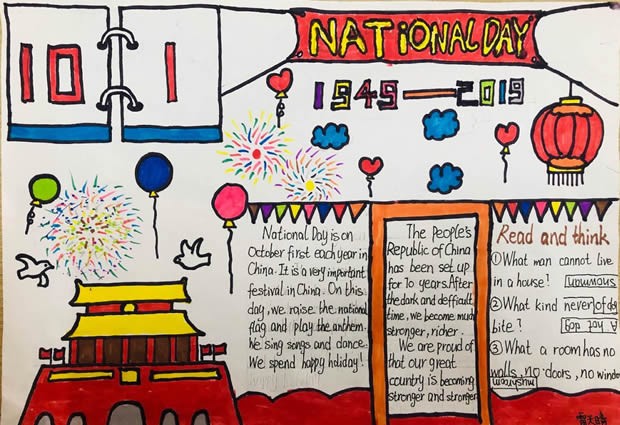 10 1
NATIONAL DAY
1949—2019
National Day is on
October first each year in
China. It is a very important
festival in China. On this
day, we raise the national
flag and play the anthem.
We sing songs and dance.
We spend happy holiday!
The people's
Republic of China
has been set up
for 70 years. After
the dark and defficult
time, we become much
stronger, richer.
We are proud of
that our great
country is becoming
stronger and stronger
Read and think
①What man cannot live
in a house!
snowman
②What kind never of dog
bite?
A hot dog
③What a room has no
walls, no doors, no window
mushroom